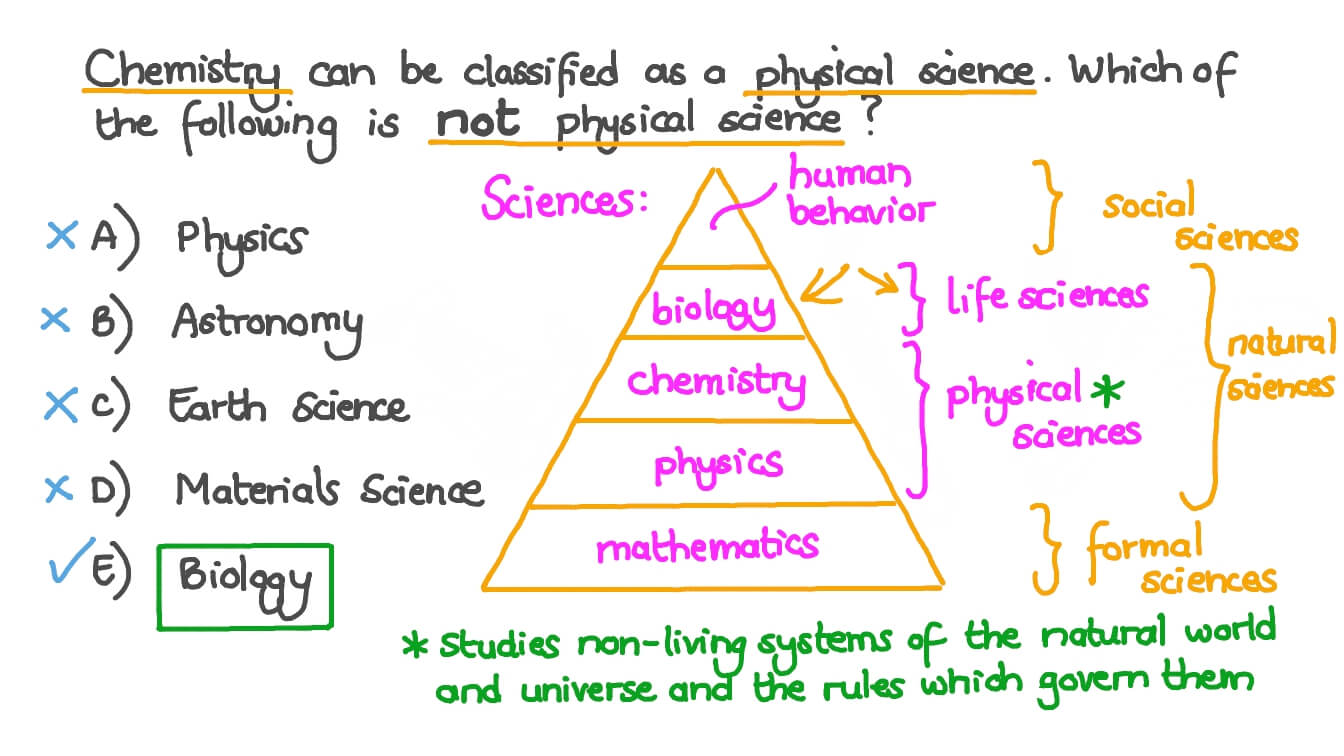 Chemistry can be classified as a physical science. Which of
the following is not physical science?
A) Physics
B) Astronomy
C) Earth Science
D) Materials Science
E) Biology
Sciences:
human
behavior
biology
chemistry
physics
mathematics
life sciences
physical *
sciences
social
sciences
natural
sciences
formal
sciences
* Studies non-living systems of the natural world
and universe and the rules which govern them